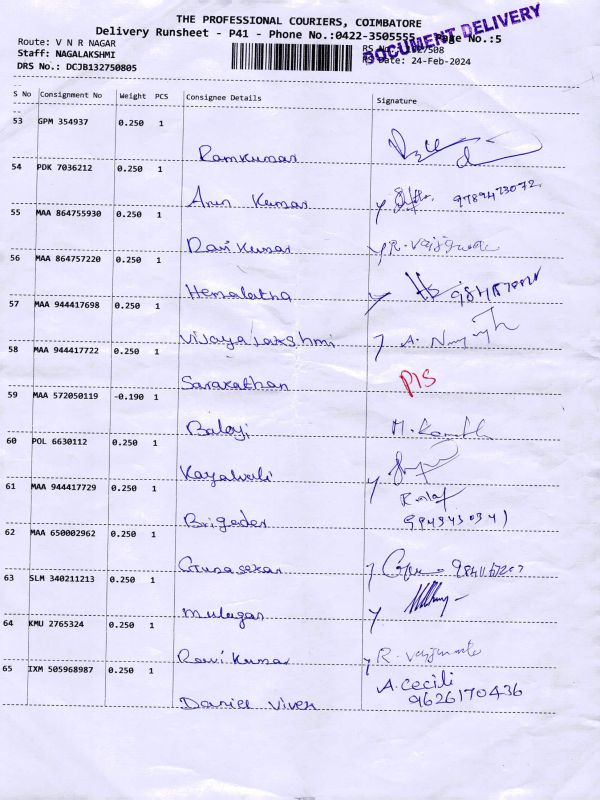 THE PROFESSIONAL COURIERS, COIMBATORE
Delivery Runsheet - P41 - Phone No.:0422-3505555 Page No.:5
DOCUMENT DELIVERY
Route: V N R NAGAR
Staff: NAGALAKSHMI
DRS No.: DCJB132750805
RS Date: 24-Feb-2024
S No Consignment No Weight PCS Consignee Details Signature
53 GPM 354937 0.250 1
Ramkumar
54 PDK 7036212 0.250 1
Arun Kumar
55 MAA 864755930 0.250 1
Ravi Kumar R.
56 MAA 864757220 0.250 1
Hemalatha
57 MAA 944417698 0.250 1
Vijayalakshmi A.
58 MAA 944417722 0.250 1
Sarakathan
59 MAA 572050119 -0.190 1
Balaji M.
60 POL 6630112 0.250 1
Kayalveli
61 MAA 944417729 0.250 1
Brigeder
62 MAA 650002962 0.250 1
Gunasekar
63 SLM 340211213 0.250 1
Mulagar
64 KMU 2765324 0.250 1
Ravi Kumar R.
65 IXM 505968987 0.250 1
A. Cecili
9626170436
Daniel